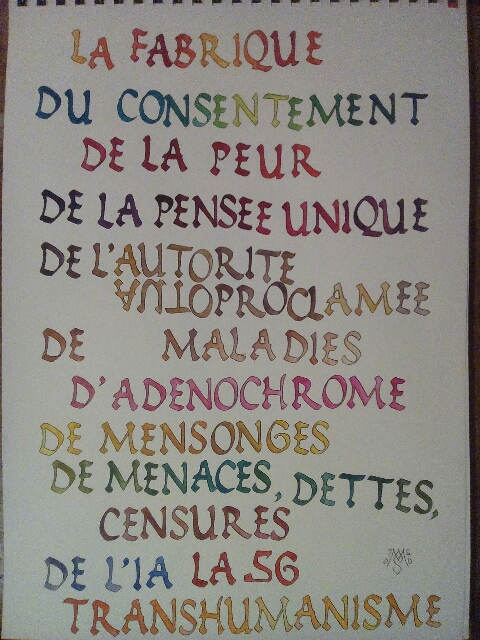 LA FABRIQUE
DU CONSENTEMENT
DE LA PEUR
DE LA PENSEE UNIQUE
DE L'AUTORITE
AUTOPROCLAMEE
DE MALADIES
D'ADENOCHROME
DE MENSONGES
DE MENACES, DETTES,
CENSURES
DE L'IA LA 5G
TRANSHUMANISME